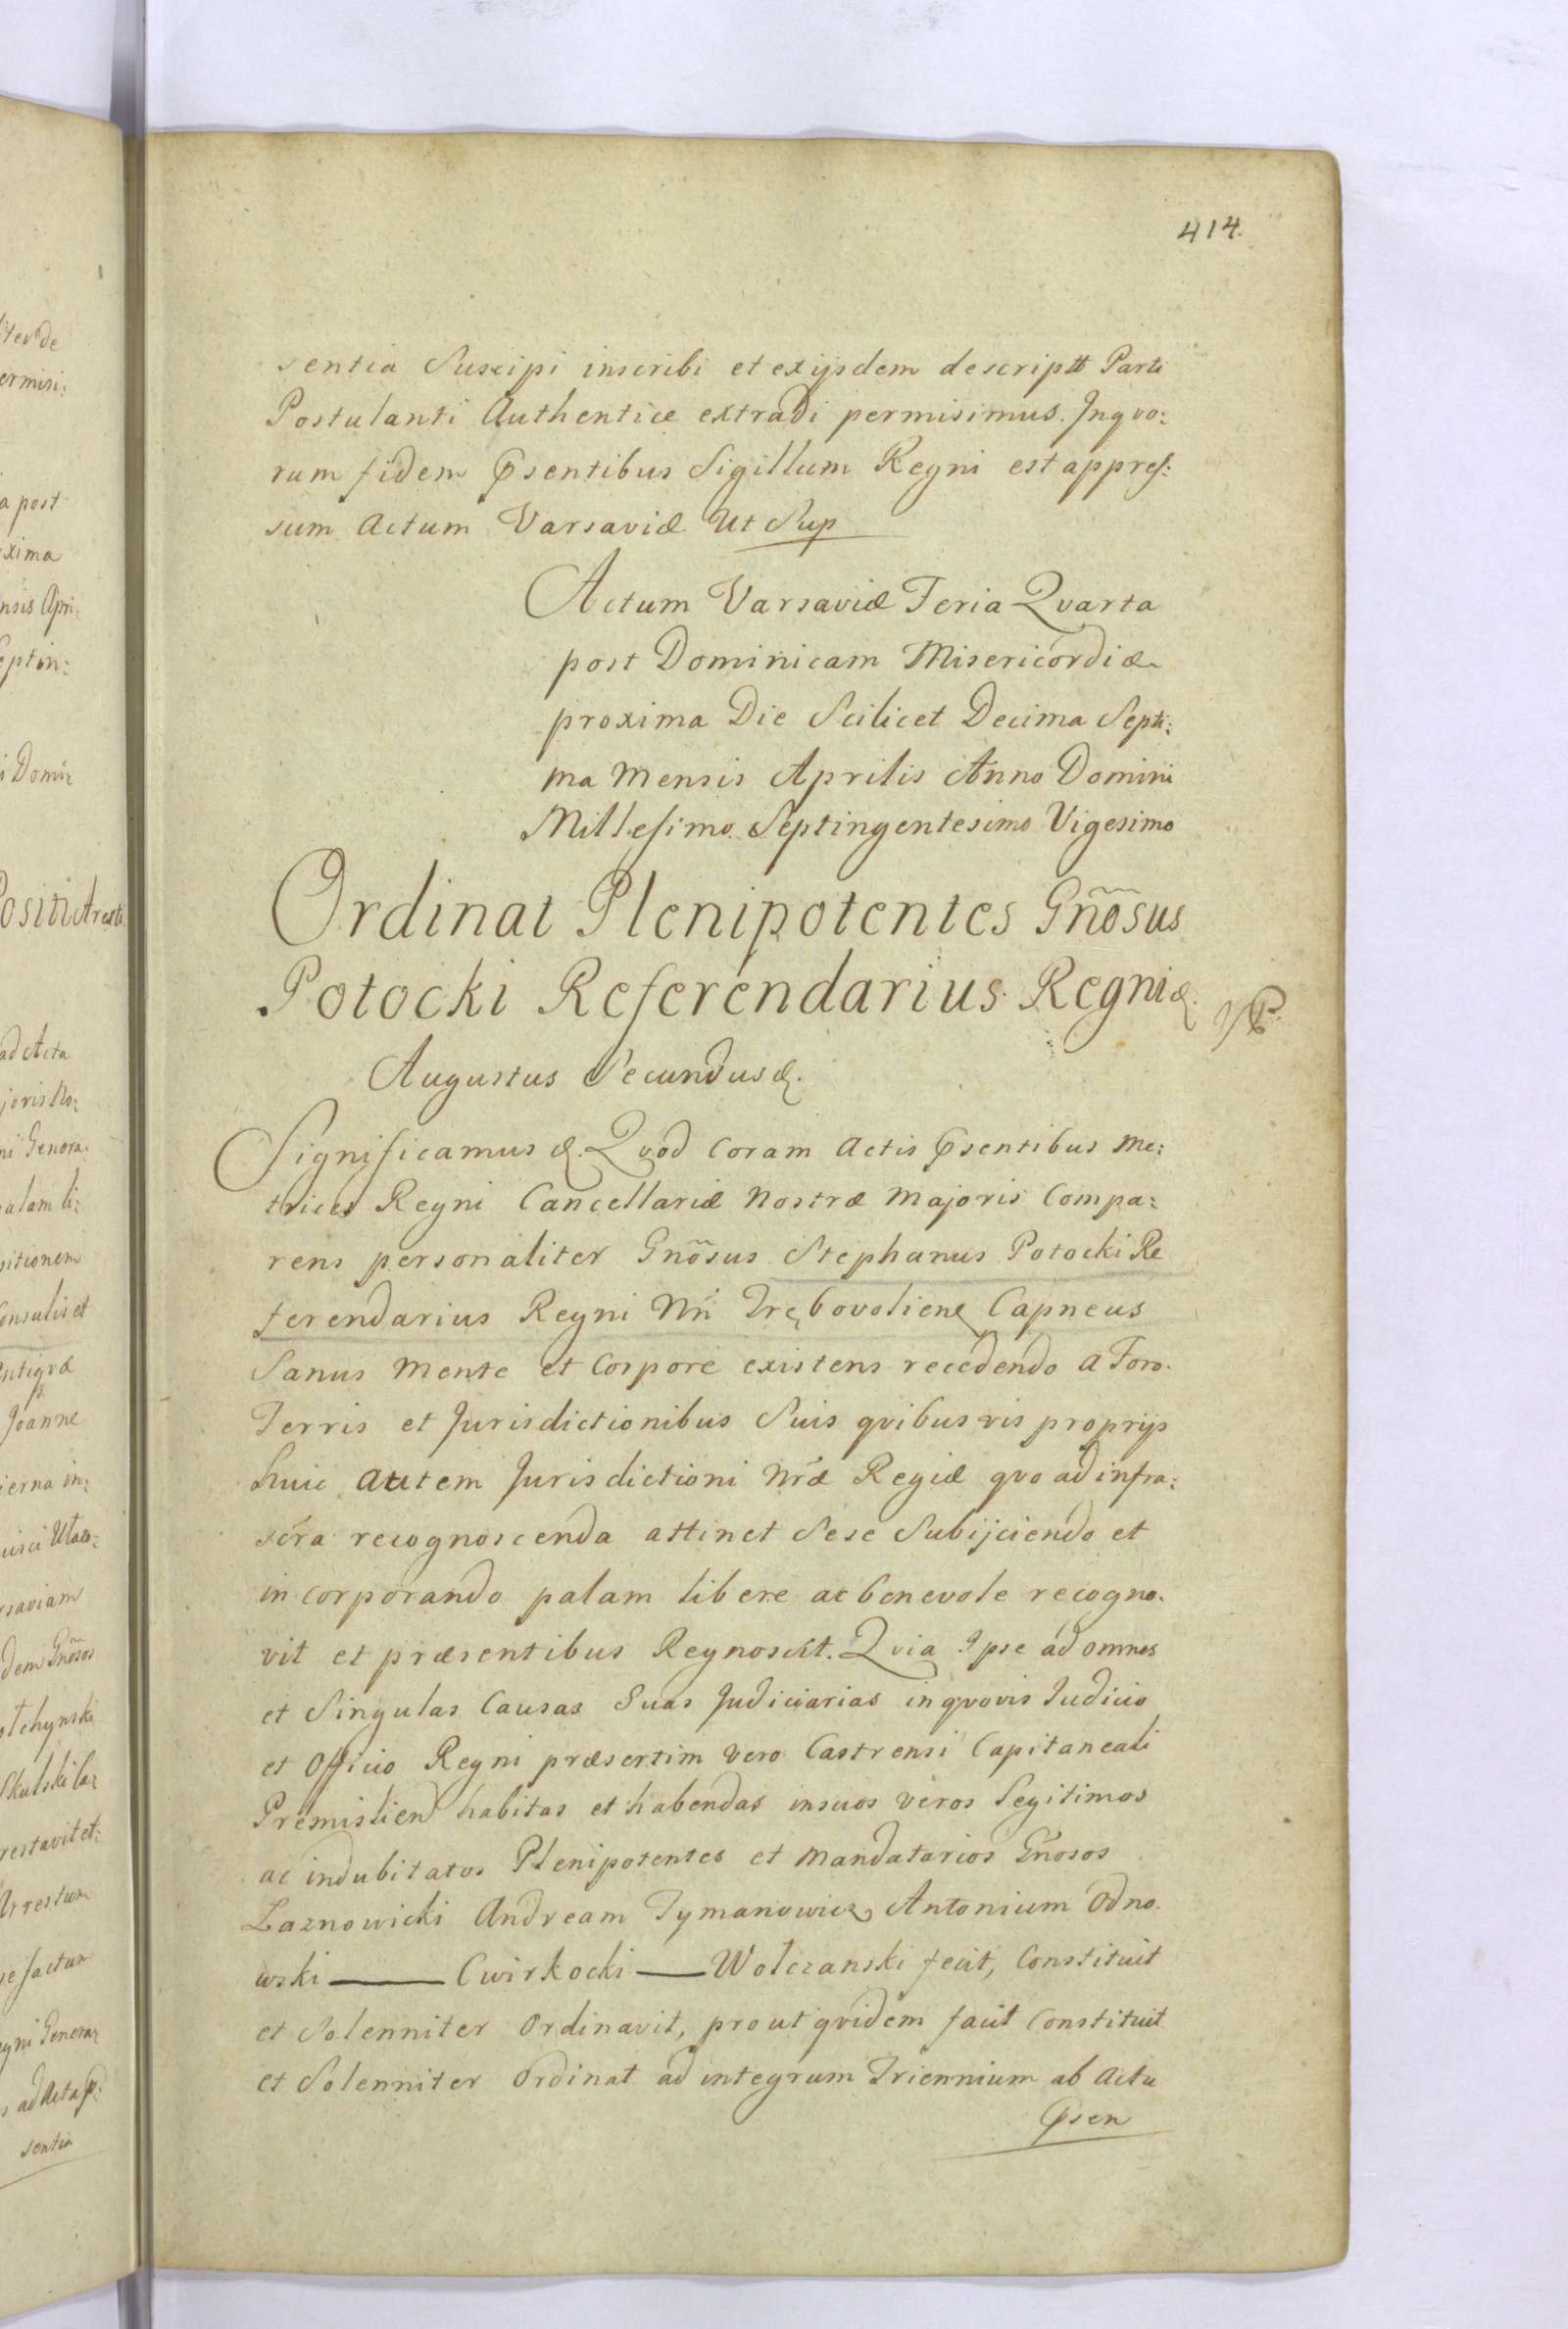 414.
sentia Suscipi inscribi et exijsdem descriptt Parti
Postulanti Authentice extradi permisimus. Inqvo:
rum fidem Psentibus Sigillum Regni est appres:
sum Actum Varsaviæ Ut Sup
Actum Varsaviæ Feria Qvarta
post Dominicam Misericordiæ
proxima Die Scilicet Decima Septi:
ma Mensis Aprilis Anno Domini
Millesimo Septingentesimo Vigesimo
Ordinat Plenipotentes Gñosus
Potocki Referendarius Regni &.
Augustus Secundus &.
Significamus &. Qvod Coram Actis Psentibus Me:
trices Regni Cancellariæ Nostræ Majoris Compa:
rens personaliter Gnõsus Stephanus Potocki Re
ferendarius Regni Nrñ Trębovolien Capneus
Sanus Mente et Corpore existens recedendo a Foro
Terris et Jurisdictionibus Suis qvibusvis proprijs
huic autem Jurisdictioni Nræ Regiæ qvo ad infra:
scra recognoscenda attinet Sese Subijciendo et
incorporando palam libere ac benevole recogno.
vit et præsentibus Regnoscit. Qvia Ipse ad omnes
et Singulas Causas Suas Judiciarias inqvovis Judicio
et Officio Regni præsertim vero Castrensi Capitaneali
Premislien habitas et habendas insuos veros Legitimos
ac indubitatos Plenipotentes et Mandatarios Gñosos
Laznowicki Andream Tymanowicz Antonium Odno.
wski — Cwirkocki — Wołczanski fecit, Constituit
et Solenniter Ordinavit, prout qvidem facit Constituit
et Solenniter Ordinat ad integrum Triennium ab Actu
Psen